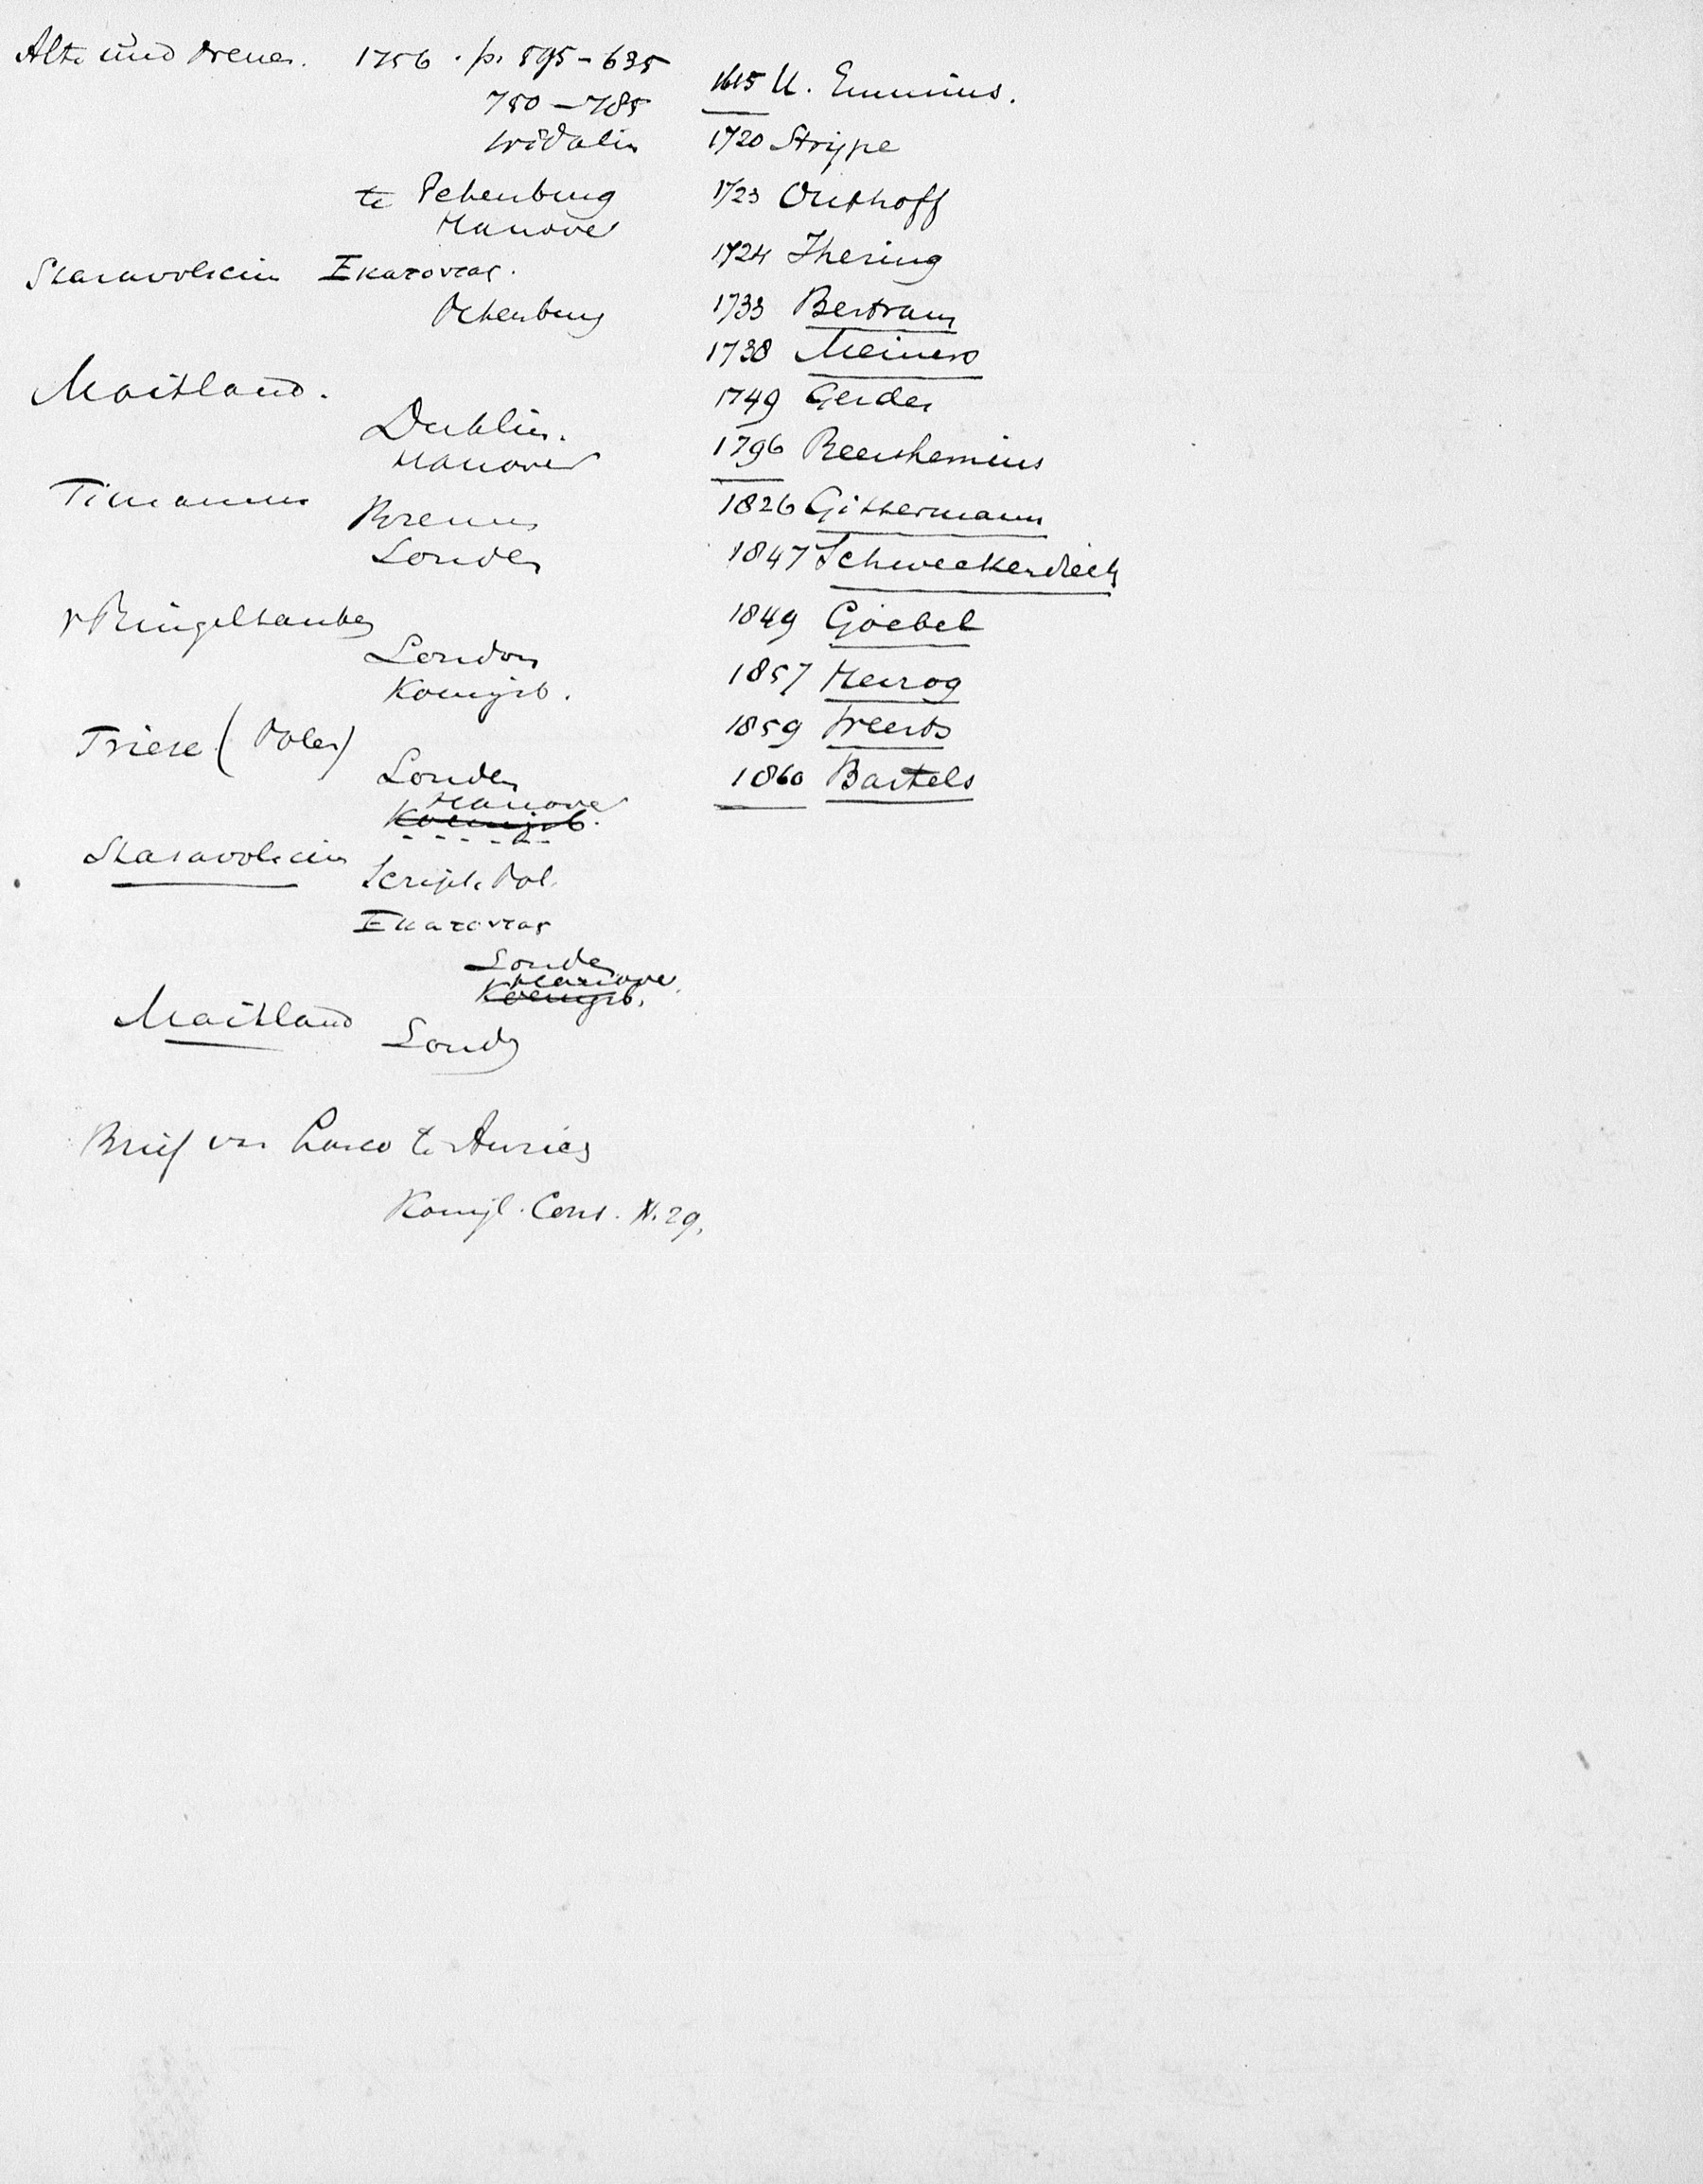 Alte und Neues. 1756. p. 595-635
750-785
te Petersburg
Hanover
Starovolscius Ἑκατοντας.
Petersburg
Maitland.
Dublin.
Hanover
Timannus
Bremen
Londen
v Ringeltaube
London
Koenigsb.
Triese (Polen)
Londen
Hanover
Koenigsb.
Starovolscius
Script. Pol.
Ἑκατοντας
Londen
Hanover
Koenigsb.
Maitland
Londen
Brief van Lasco te Aurich
Konigl. Cons. N. 29.
1615 U. Emmius.
1720 Strype
1723 Outhoff
1724 Ihering
1733 Bertram
1738 Meiners
1749 Gerdes
1796 Reershemius
1826 Gittermann
1847 Schweckendieck
1849 Goebel
1857 Herzog
1859
1860 Bartels